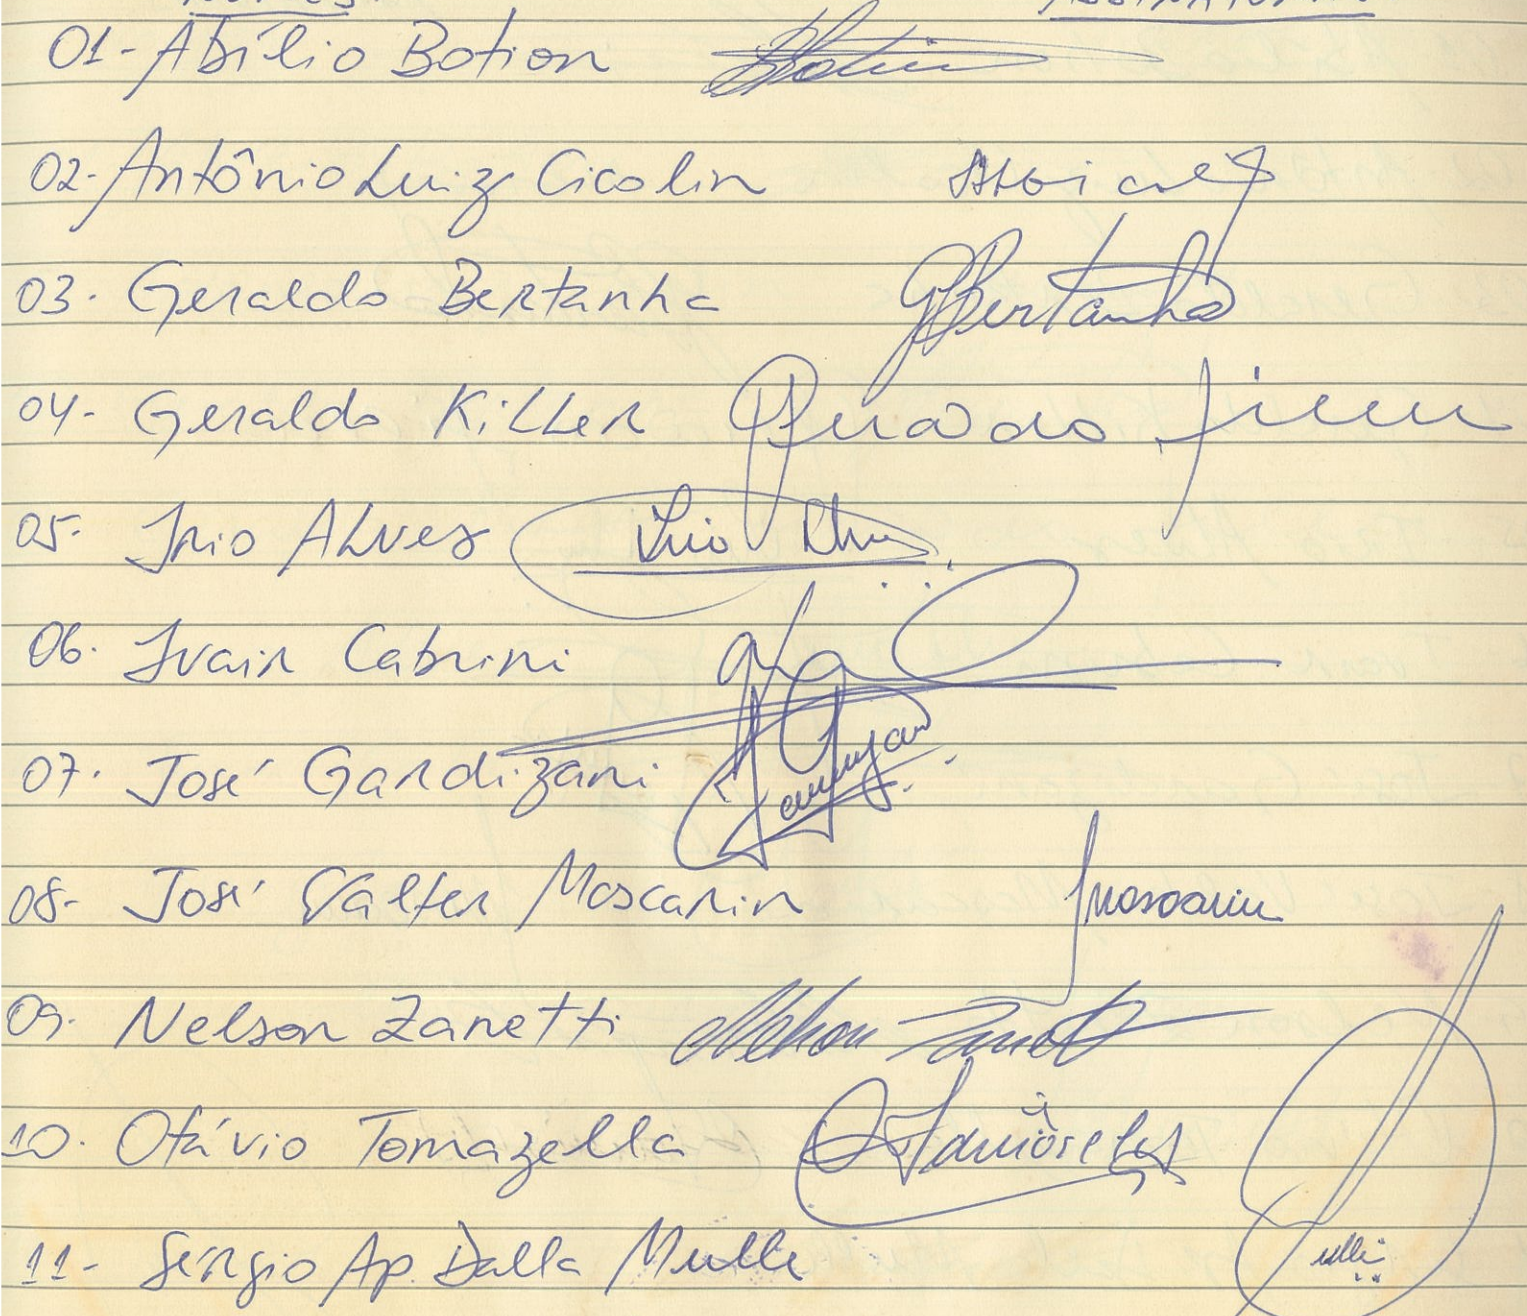 01- Abílio Botion
02- Antônio Luiz Cicolin
03. Geraldo Bertanha GBertanha
04- Geraldo Killer
05- Irio Alves Irio Alves
06. Ivair Cabrini
07. José Gardizani
08- José Valter Moscarin Jmoscarin
09. Nelson Zanetti Nelson Zanetti
10. Otávio Tomazella
11- Sérgio Ap. Dalla Mulle